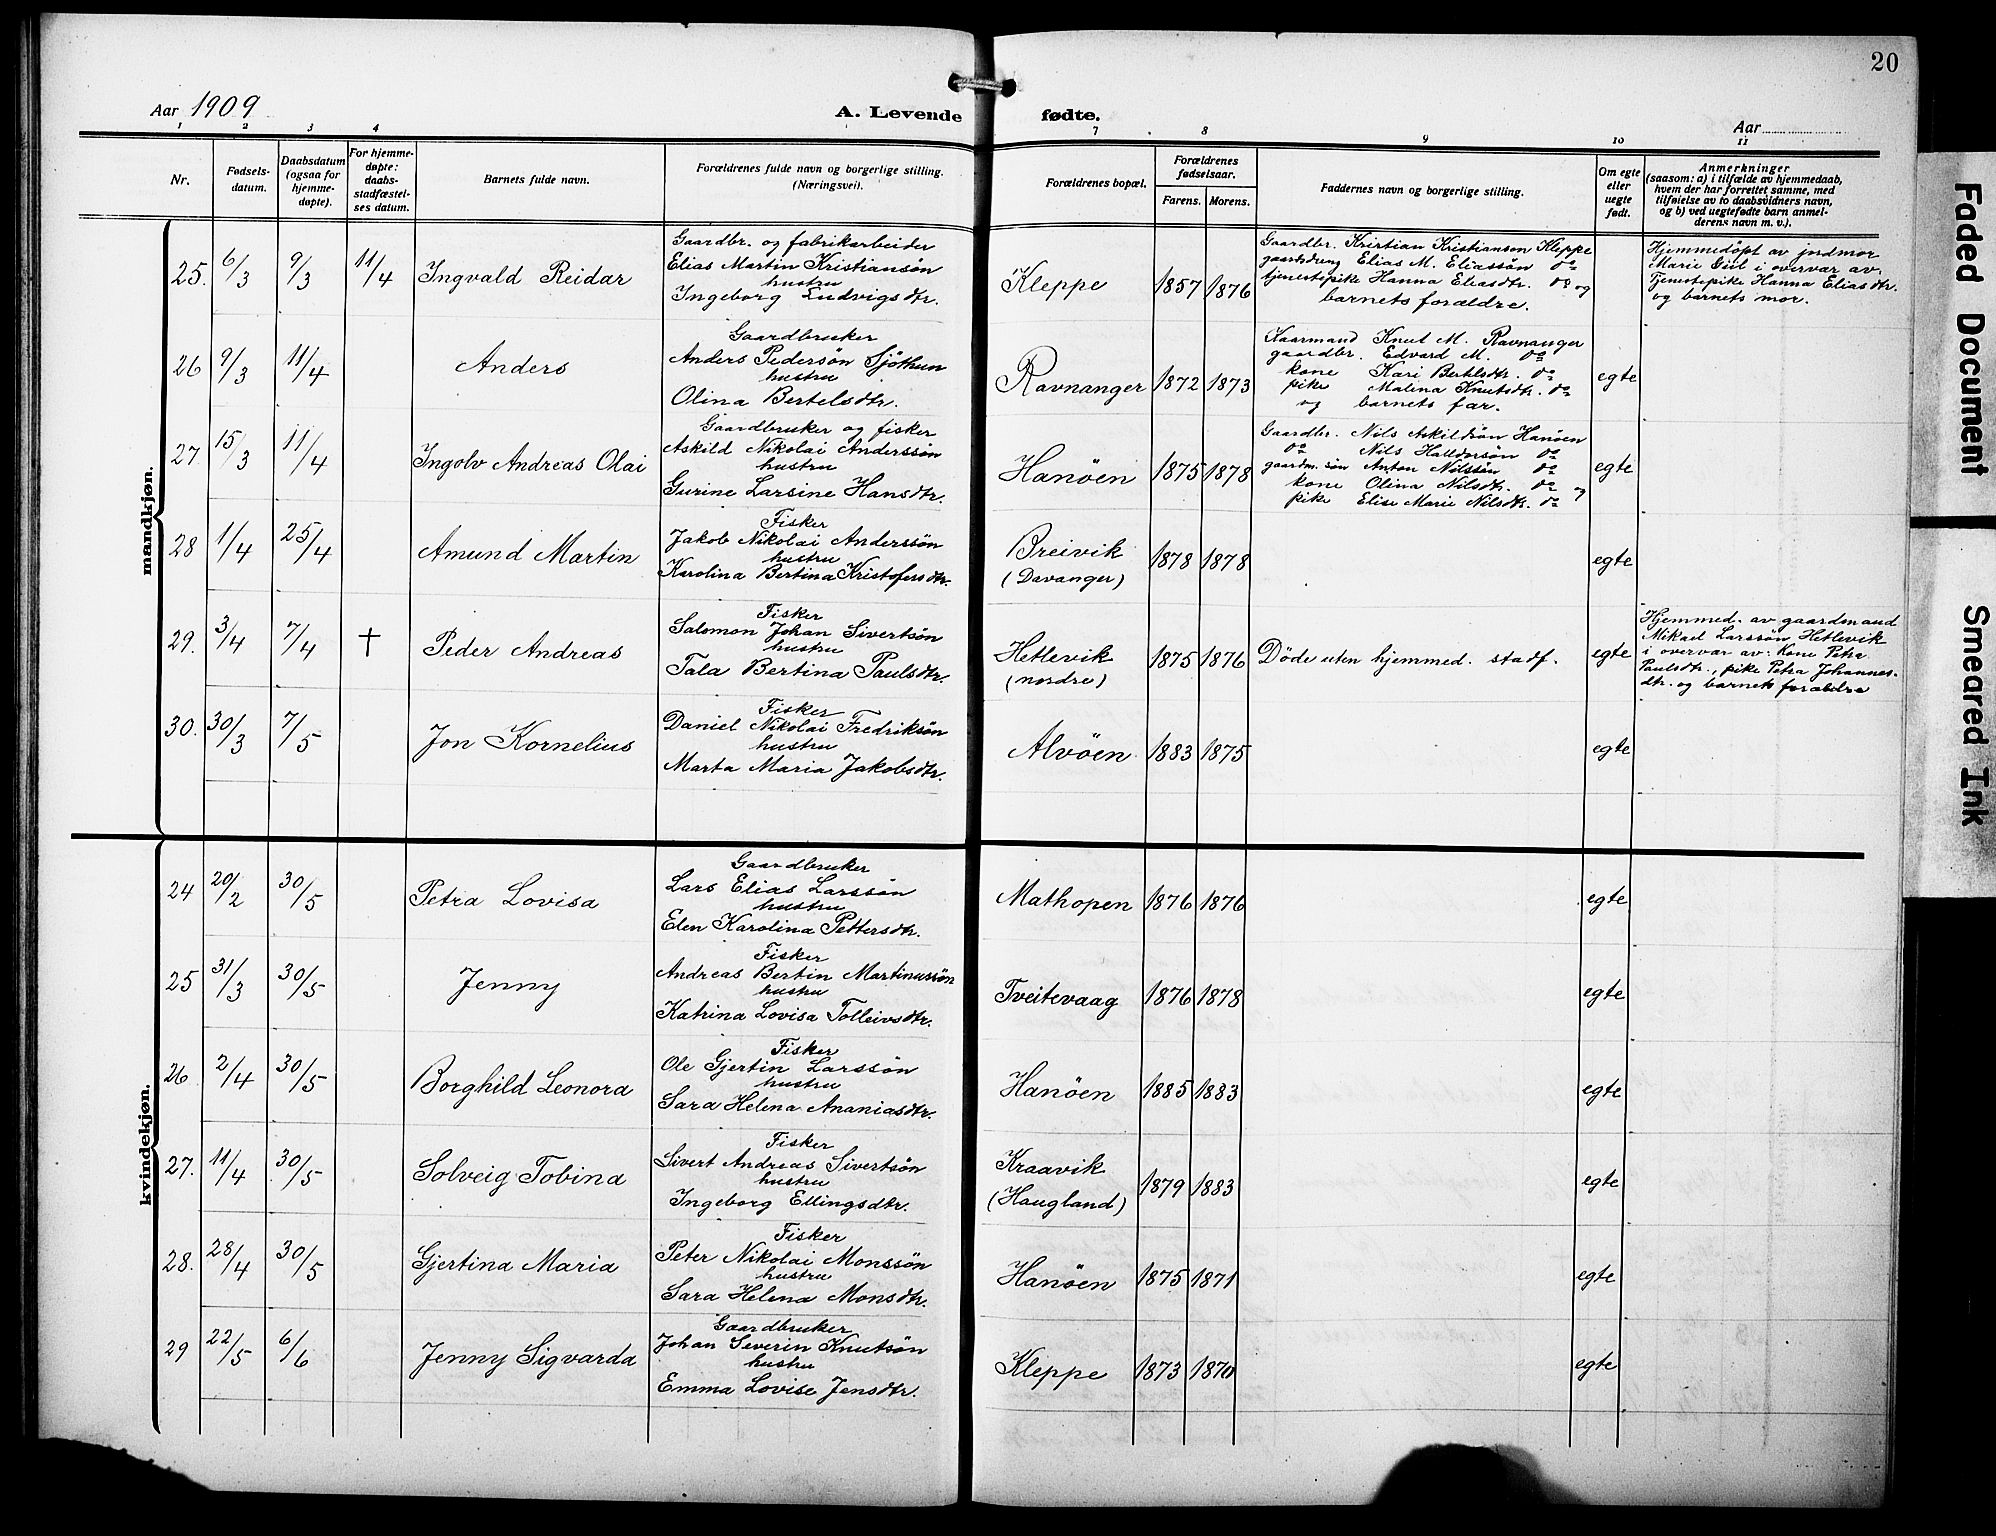 20
Aar 1909
A. Levende fødte.
Aar
1 2 3 4 7 8 9 10 11
Nr.
Fødsels-
datum.
Daabsdatum
(ogsaa for
hjemme-
døpte).
For hjemme-
døpte:
daabs-
stadfæstel-
ses datum.
Barnets fulde navn.
Forældrenes fulde navn og borgerlige stilling.
(Næringsvei).
Forældrenes bopæl.
Forældrenes
fødselsaar.
Farens. Morens.
Faddernes navn og borgerlige stilling.
Om egte
eller
uegte
født.
Anmerkninger
(saasom: a) i tilfælde av hjemmedaab,
hvem der har forrettet samme, med
tilføielse av to daabsvidners navn,
og b) ved uegtefødte barn anmel-
derens navn m. v.).
mandkjøn.
25. 6/3 9/3 11/4 Ingvald Reidar
Gaardbr. og fabrikarbeider
Elias Martin Kristiansön
hustru
Ingeborg Ludvigsdtr.
Kleppe 1857 1876
Gaardbr. Kristian Kristianson Kleppe
gaardsdreng Elias M. Eliassön do
tjenestepike Hanna Eliasdtr. do og
barnets forældre.
Hjemmedöpt av jordmor
Marie Giil i overvær av.
Tjenestepike Hanna Eliasdtr.
og barnets mor.
26 9/3 11/4 Anders
Gaardbruker
Anders Pedersön Sjöthun
hustru
Olina Bertelsdtr.
Ravnanger 1872 1873
Kaarmand Knut M. Ravnanger
gaardbr. Edvard M. do
kone Kari Bertelsdtr. do
pike Malina Knutsdtr. do
og barnets far.
egte
27. 15/3 11/4 Ingolv Andreas Olai
Gaardbruker og fisker
Askild Nikolai Anderssön
hustru
Gurine Larsine Hansdtr.
Hanöen 1875 1878
Gaardbr. Nils Askildsön Hanöen
do Nils Halldorsön do
gaardm. sön Anton Nilssön do
kone Olina Nilsdtr. do og
pike Elise Marie Nilsdtr. do
egte
28 1/4 25/4 Amund Martin
Fisker
Jakob Nikolai Anderssön
hustru
Karolina Bertina Kristofersdtr.
Breivik
(Davanger)
1878 1878
egte
29. 3/4 7/4 † Peder Andreas
Fisker
Salomon Johan Sivertsön
hustru
Tala Bertina Paulsdtr.
Hetlevik
(nordre)
1875 1876
Döde uten hjemmed. stadf.
egte
Hjemmed. av gaardmand
Mikael Larssön Hetlevik
i overvær av: Kone Petra
Paulsdtr., pike Petra Johannes-
dtr. og barnets forældre
30. 30/3 7/5 Jon Kornelius
Fisker
Daniel Nikolai Fredriksön
hustru
Marta Maria Jakobsdtr.
Alvöen 1883 1875
egte
kvindekjøn.
24 20/2 30/5 Petra Lovisa
Gaardbruker
Lars Elias Larssön
hustru
Elen Karolina Pettersdtr.
Mathopen 1876 1876
egte
25 31/3 30/5 Jenny
Fisker
Andreas Bertin Martinussön
hustru
Katrina Lovisa Tolleivsdtr.
Tveitevaag 1876 1878
egte
26 2/4 30/5 Borghild Leonora
Fisker
Ole Gjertin Larssön
hustru
Sara Helena Ananiasdtr.
Hanöen 1885 1883
egte
27. 11/4 30/5 Solveig Tobina
Fisker
Sivert Andreas Sivertsön
hustru
Ingeborg Ellingsdtr.
Kraavik
(Haugland)
1879 1883
egte
28. 28/4 30/5 Gjertina Maria
Fisker
Peter Nikolai Monssön
hustru
Sara Helena Monsdtr.
Hanöen 1875 1871
egte
29 22/5 6/6 Jenny Sigvarda
Gaardbruker
Johan Severin Knutsön
hustru
Emma Lovise Jensdtr.
Kleppe 1873 1870
egte
Faded Document
Smeared Ink